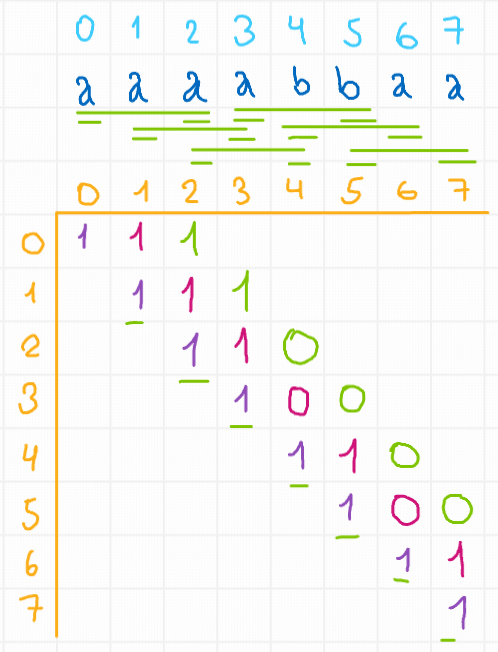 0 1 2 3 4 5 6 7
a a a a b b a a
0 1 2 3 4 5 6 7
0 1 1 1
1 1 1 1
2 1 1 0
3 1 0 0
4 1 1 0
5 1 0 0
6 1 1
7 1